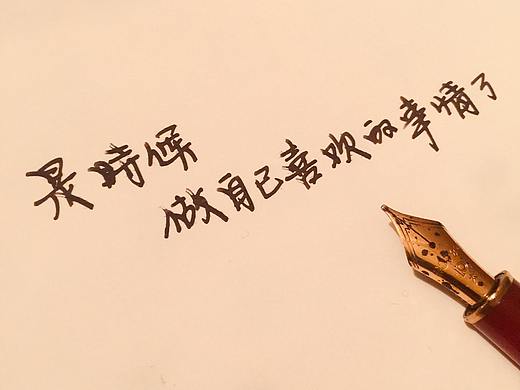 是時候
做自己喜欢的事情了